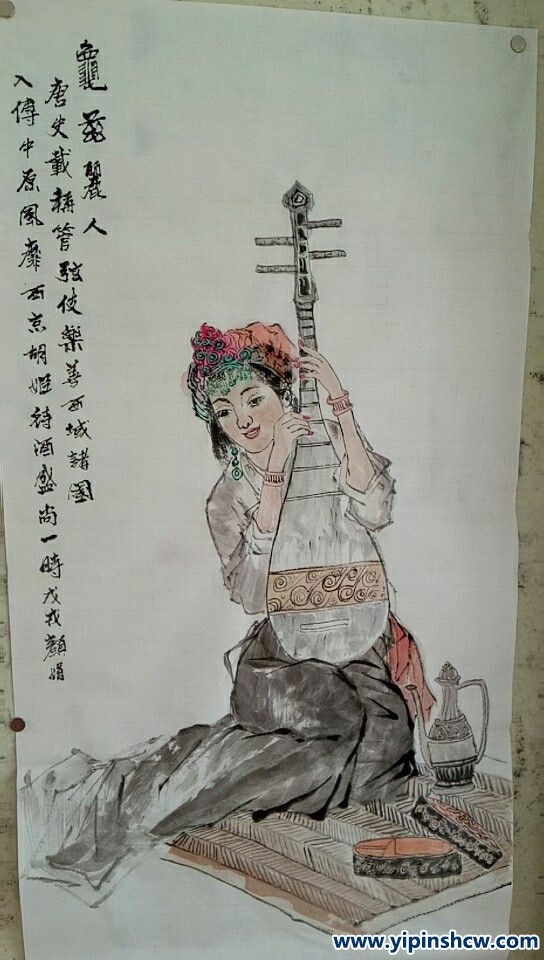 龜茲麗人
唐史載稱管弦伎樂善西域諸國
入傳中原風靡西京胡姬詩酒盛尚一時戊戌顏娟
www.yipinshcw.com